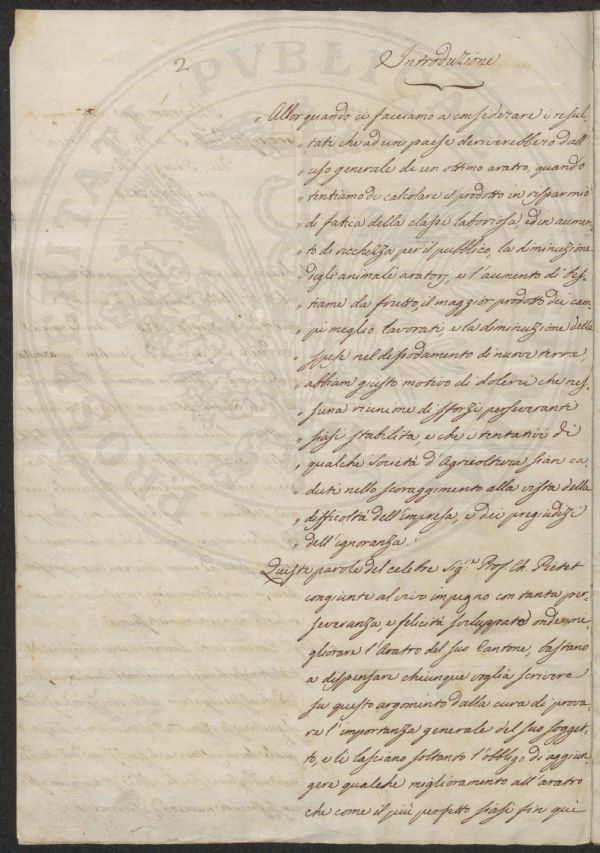 2.
Introduzione
„ Allorquando ci facciamo a considerare i resul-
„ tati che ad un paese deriverebbero dall'
„ uso generale di un ottimo aratro, quando
„ tentiamo di calcolare il prodotto in risparmio
„ di fatica della classe laboriosa, ed in aumen-
„ to di ricchezza per il pubblico, la diminuzione
„ degli animali aratorj, e l'aumento di bes-
„ tiame da frutto, il maggior prodotto dei cam-
„ pi meglio lavorati, e la diminuzione delle
„ spese nel dissodamento di nuove terre,
„ abbiam giusto motivo di dolerci che nes-
„ suna riunione di sforzi perseveranti
„ siasi stabilita, e che i tentativi di
„ qualche Società d'Agricoltura sian ca-
„ duti nello scoraggimento alla vista della
„ difficoltà dell'impresa, e dei pregiudizi
„ dell'ignoranza.
Queste parole del celebre Sig.re Prof. Ch. Pictet
congiunte al vivo impegno con tanta per-
severanza, e felicità sviluppato onde mi-
gliorare l'Aratro del suo Cantone, bastano
a dispensare chiunque voglia scrivere
su questo argomento dalla cura di prova-
re l'importanza generale del suo sogget-
to, e li lasciano soltanto l'obbligo di aggiun-
gere qualche miglioramento all'aratro
che come il più perfetto siasi fin quì
PVBLICAE
PROSPERITATI